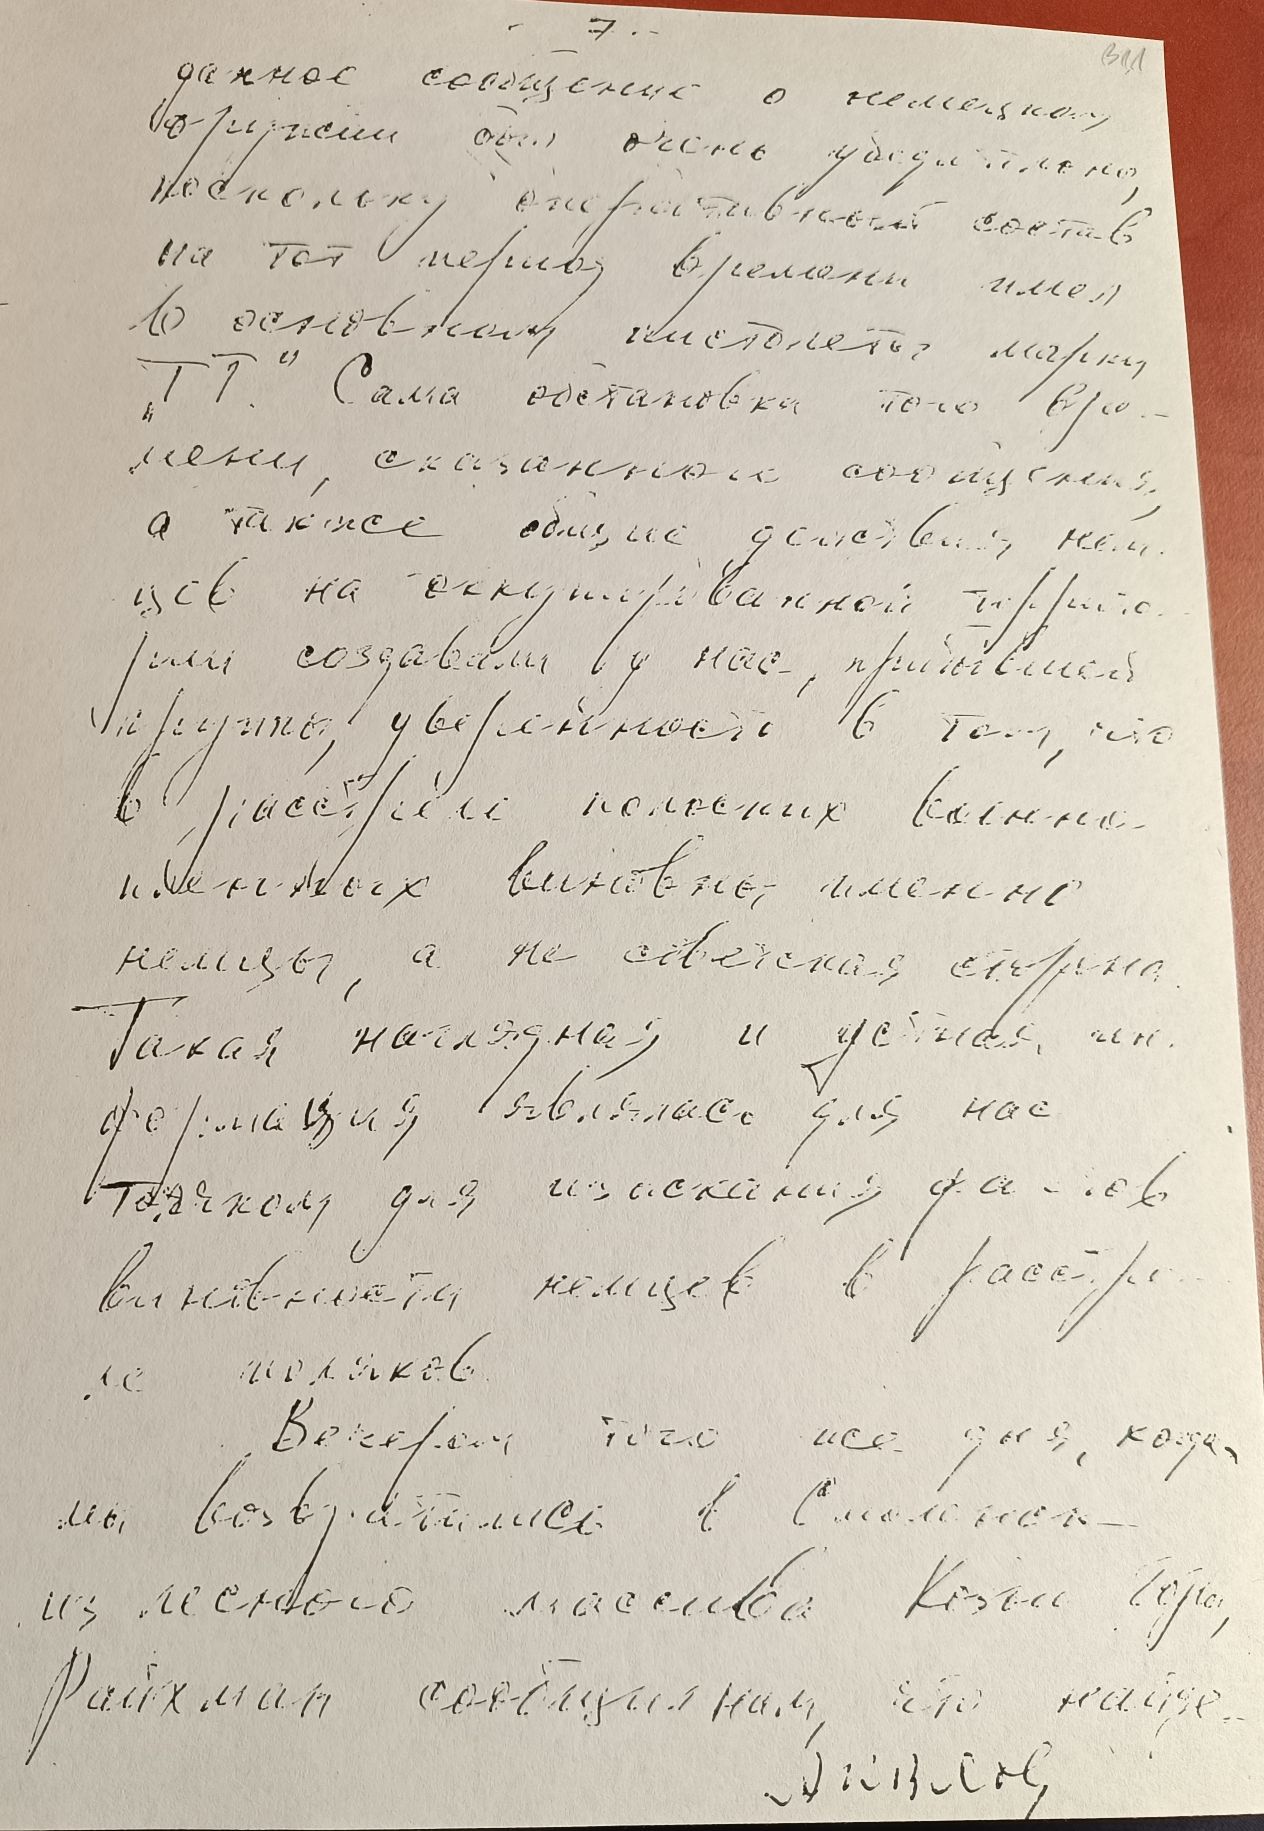 - 7. -
данное сообщение о немецком
оружии был очень убедительно,
поскольку оперативный состав
на тот период времени имел
в основном пистолеты марки
„ТТ." Сама обстановка того вре-
мени, сказанное сообщения,
а также общие действия нем-
цев на оккупированной террито-
рии создавали у нас, прибывшей
группы, уверенность в том, что
в расстреле польских военно-
пленных виновны именно
немцы, а не советская сторона.
Такая наглядная и устная ин-
формация являлась для нас
толчком для изыскания фактов
виновности немцев в расстре-
ле поляков.
Вечером того же дня, когда
мы возвратились в Смоленск
из лесного массива Козьи Горы,
Райхман сообщил нам, что найде-